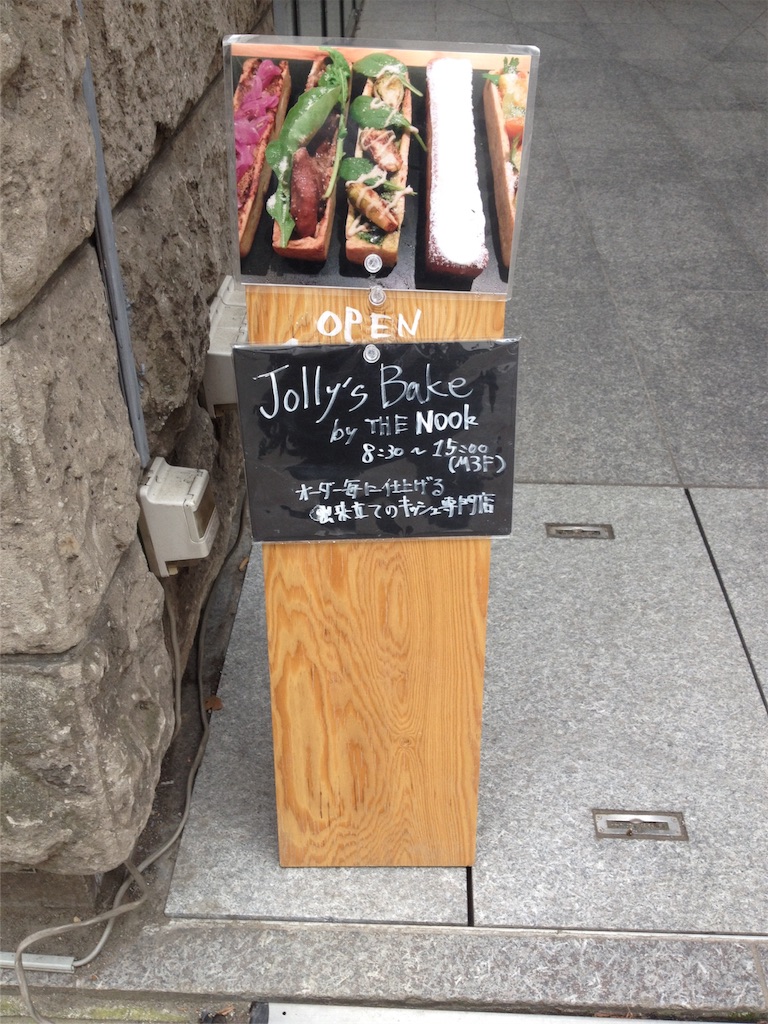 OPEN
Jolly's Bake
by THE NOOK
8:30～15:00
(M3F)
オーダー毎に仕上げる
出来立てのキッシュ専門店